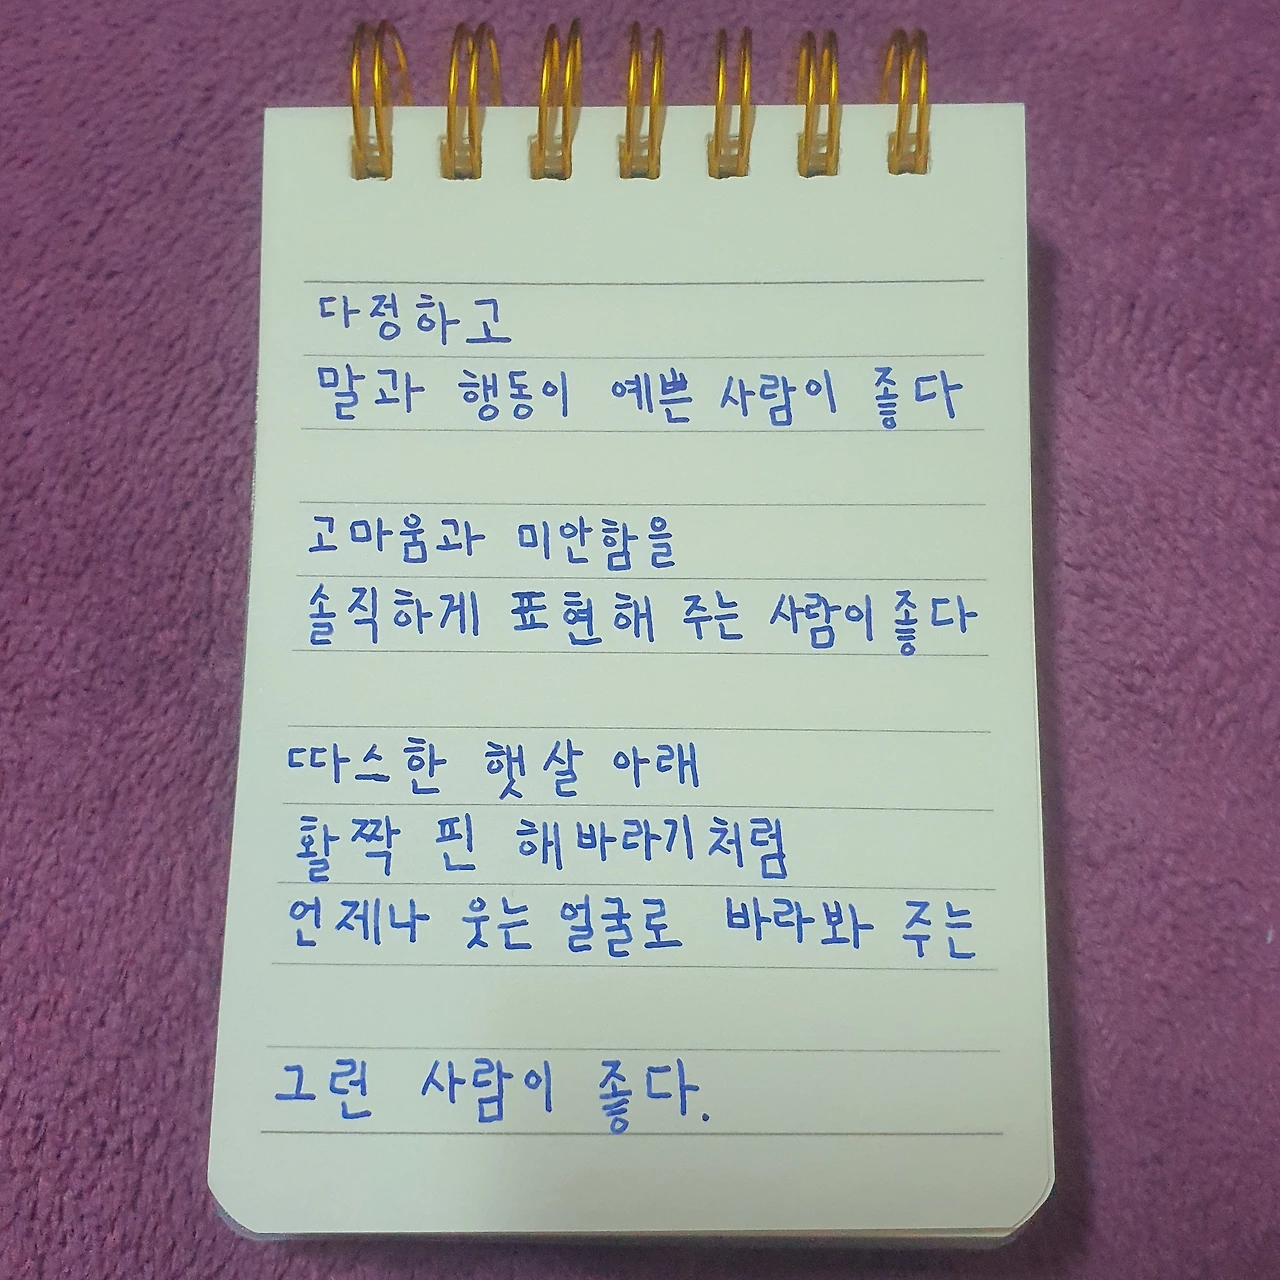 다정하고
말과 행동이 예쁜 사람이 좋다
고마움과 미안함을
솔직하게 표현해 주는 사람이 좋다
따스한 햇살 아래
활짝 핀 해바라기처럼
언제나 웃는 얼굴로 바라봐 주는
그런 사람이 좋다.